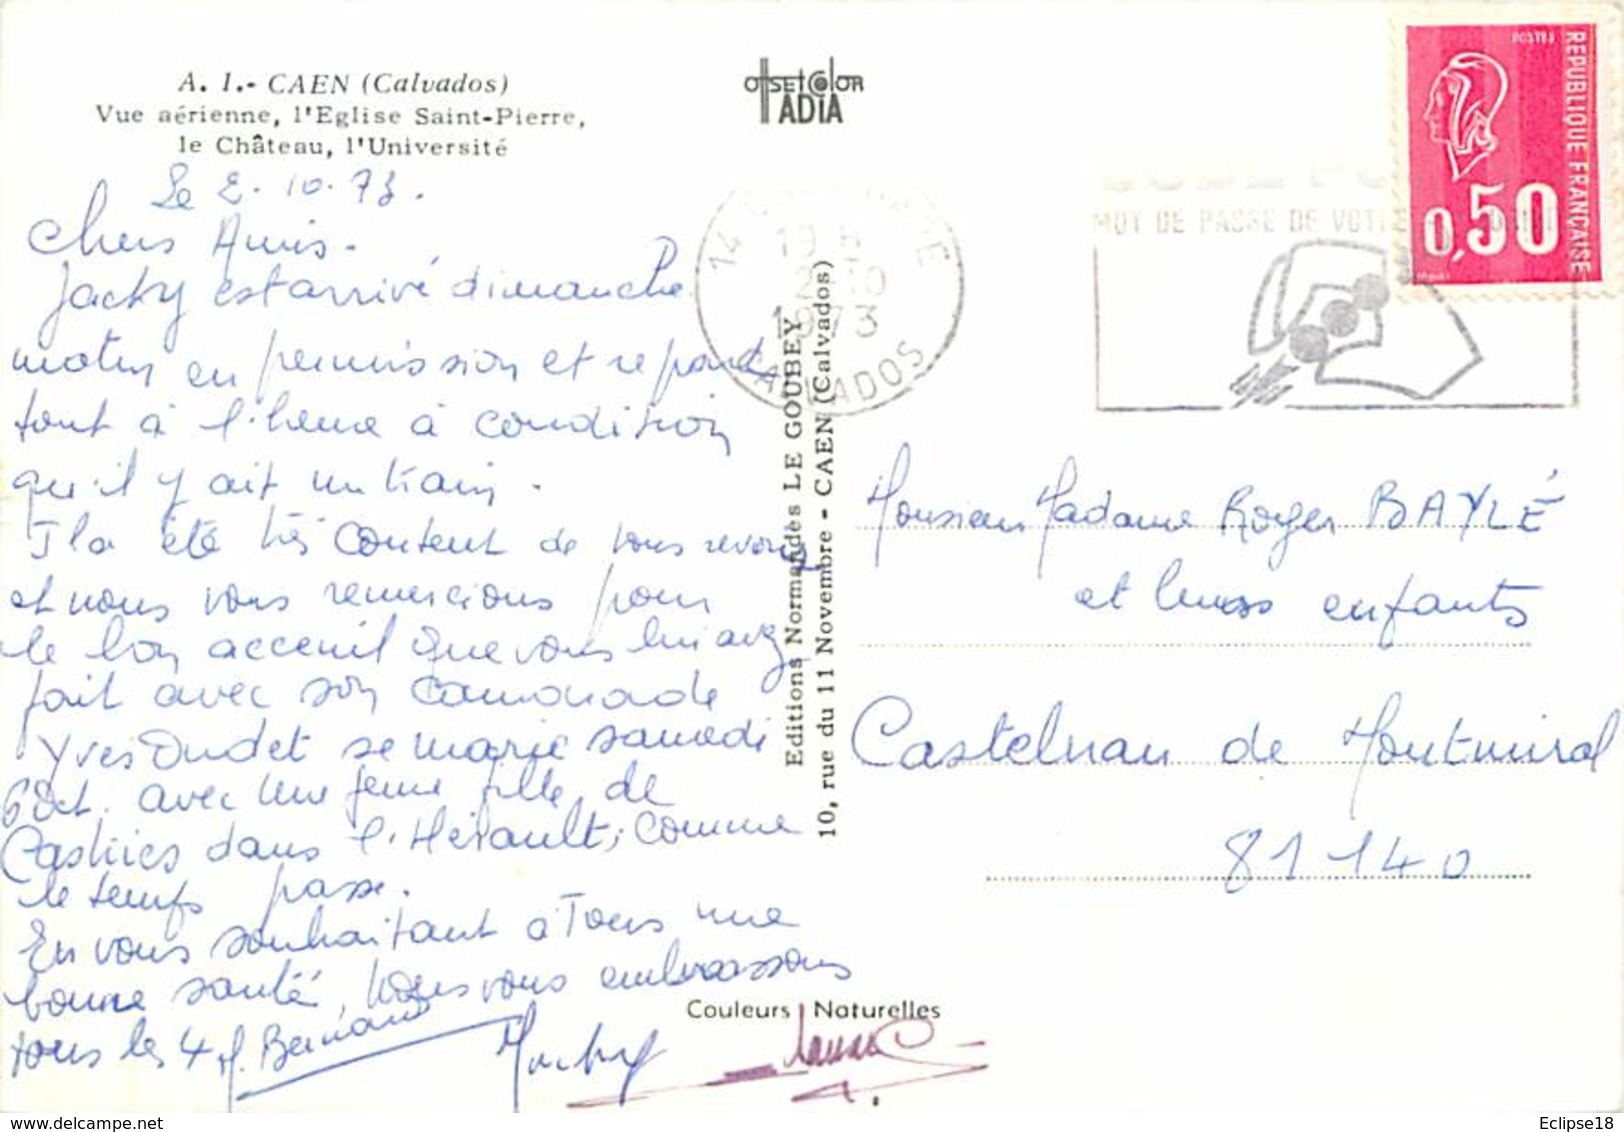 A. I.- CAEN (Calvados)
Vue aérienne, l'Eglise Saint-Pierre,
le Château, l'Université
OffsetColor
IADIA
Le 2.10.73.
Chers Amis.
Jacky est arrivé dimanche
matin en permission et repart
tout à l'heure à condition
qu'il y ait un train.
Il a été très content de vous revoir
et nous vous remercions pour
le bon acceuil que vous lui avez
fait avec son camarade
Yves Oudet se marie samedi
6 Oct. avec une jeune fille de
Castries dans l'Hérault, comme
le temps passe.
En vous souhaitant à Tous une
bonne santé, Nous vous embrassons
tous les 4
Editions Normandes LE GOUBEY
10, rue du 11 Novembre - CAEN (Calvados)
Couleurs Naturelles
14
19 H
2 10
1973
CALVADOS
MOT DE PASSE DE VOTRE
POSTES
REPUBLIQUE FRANÇAISE
0,50
Monsieur Madame Roger BAYLÉ
et leurs enfants
Castelnau de Montmiral
81140
Eclipse18